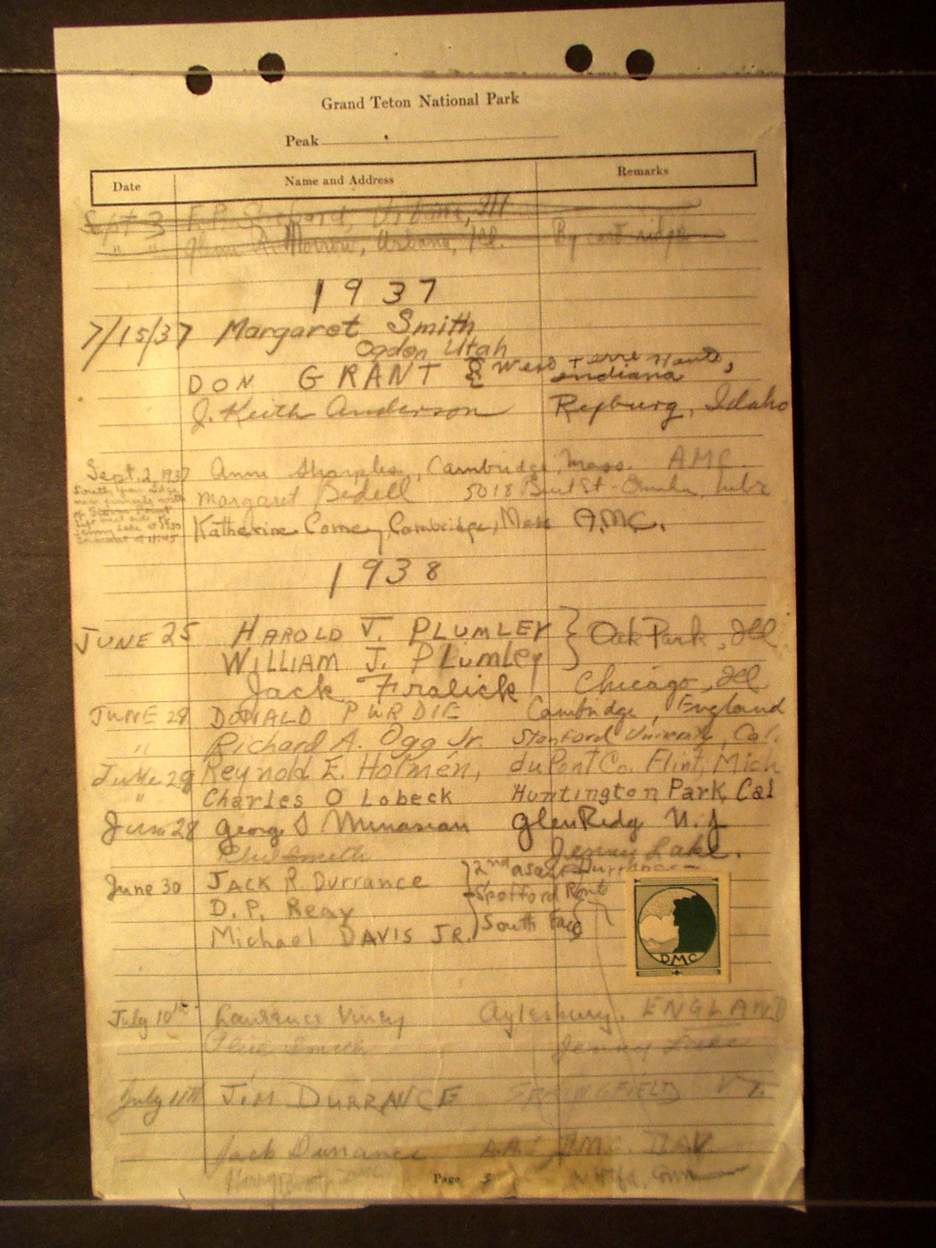 Grand Teton National Park
Peak
Date Name and Address Remarks
Sept 3 F.P. Shepard, Urbana, Ill
" " Glenn R. Morrow, Urbana, Ill. By cart ridge
1937
7/15/37 Margaret Smith
Ogden Utah
DON GRANT & West Terre Haute,
Indiana
J. Keith Anderson Rexburg, Idaho
Sept. 2, 1937 Anne Sharples, Cambridge, Mass. AMC
Margaret Bedell 5018 Burt St - Omaha, Nebr
Katherine Comey, Cambridge, Mass A.M.C.
1938
JUNE 25 HAROLD V. PLUMLEY } Oak Park, Ill.
WILLIAM J. PLUMLEY
Jack Fralick Chicago, Ill
JUNE 29 DONALD PURDIE Cambridge, England
" Richard A. Ogg Jr. Stanford University, Cal.
June 29 Reynold E. Holmen, duPont Co. Flint, Mich
" Charles O Lobeck Huntington Park, Cal
June 28 George S Minasian Glen Ridg N.J
Smith Jenny Lake.
June 30 JACK R. Durrance 2nd ascent Durrance
D. P. Reay Spofford Route
Michael DAVIS JR. South Face
DMC
July 10th Laurance Viney Aylesbury, ENGLAND
Smith Jenny Lake
July 11th JIM DURRANCE SPRINGFIELD VT.
Jack Durrance AAC DMC
Page 5